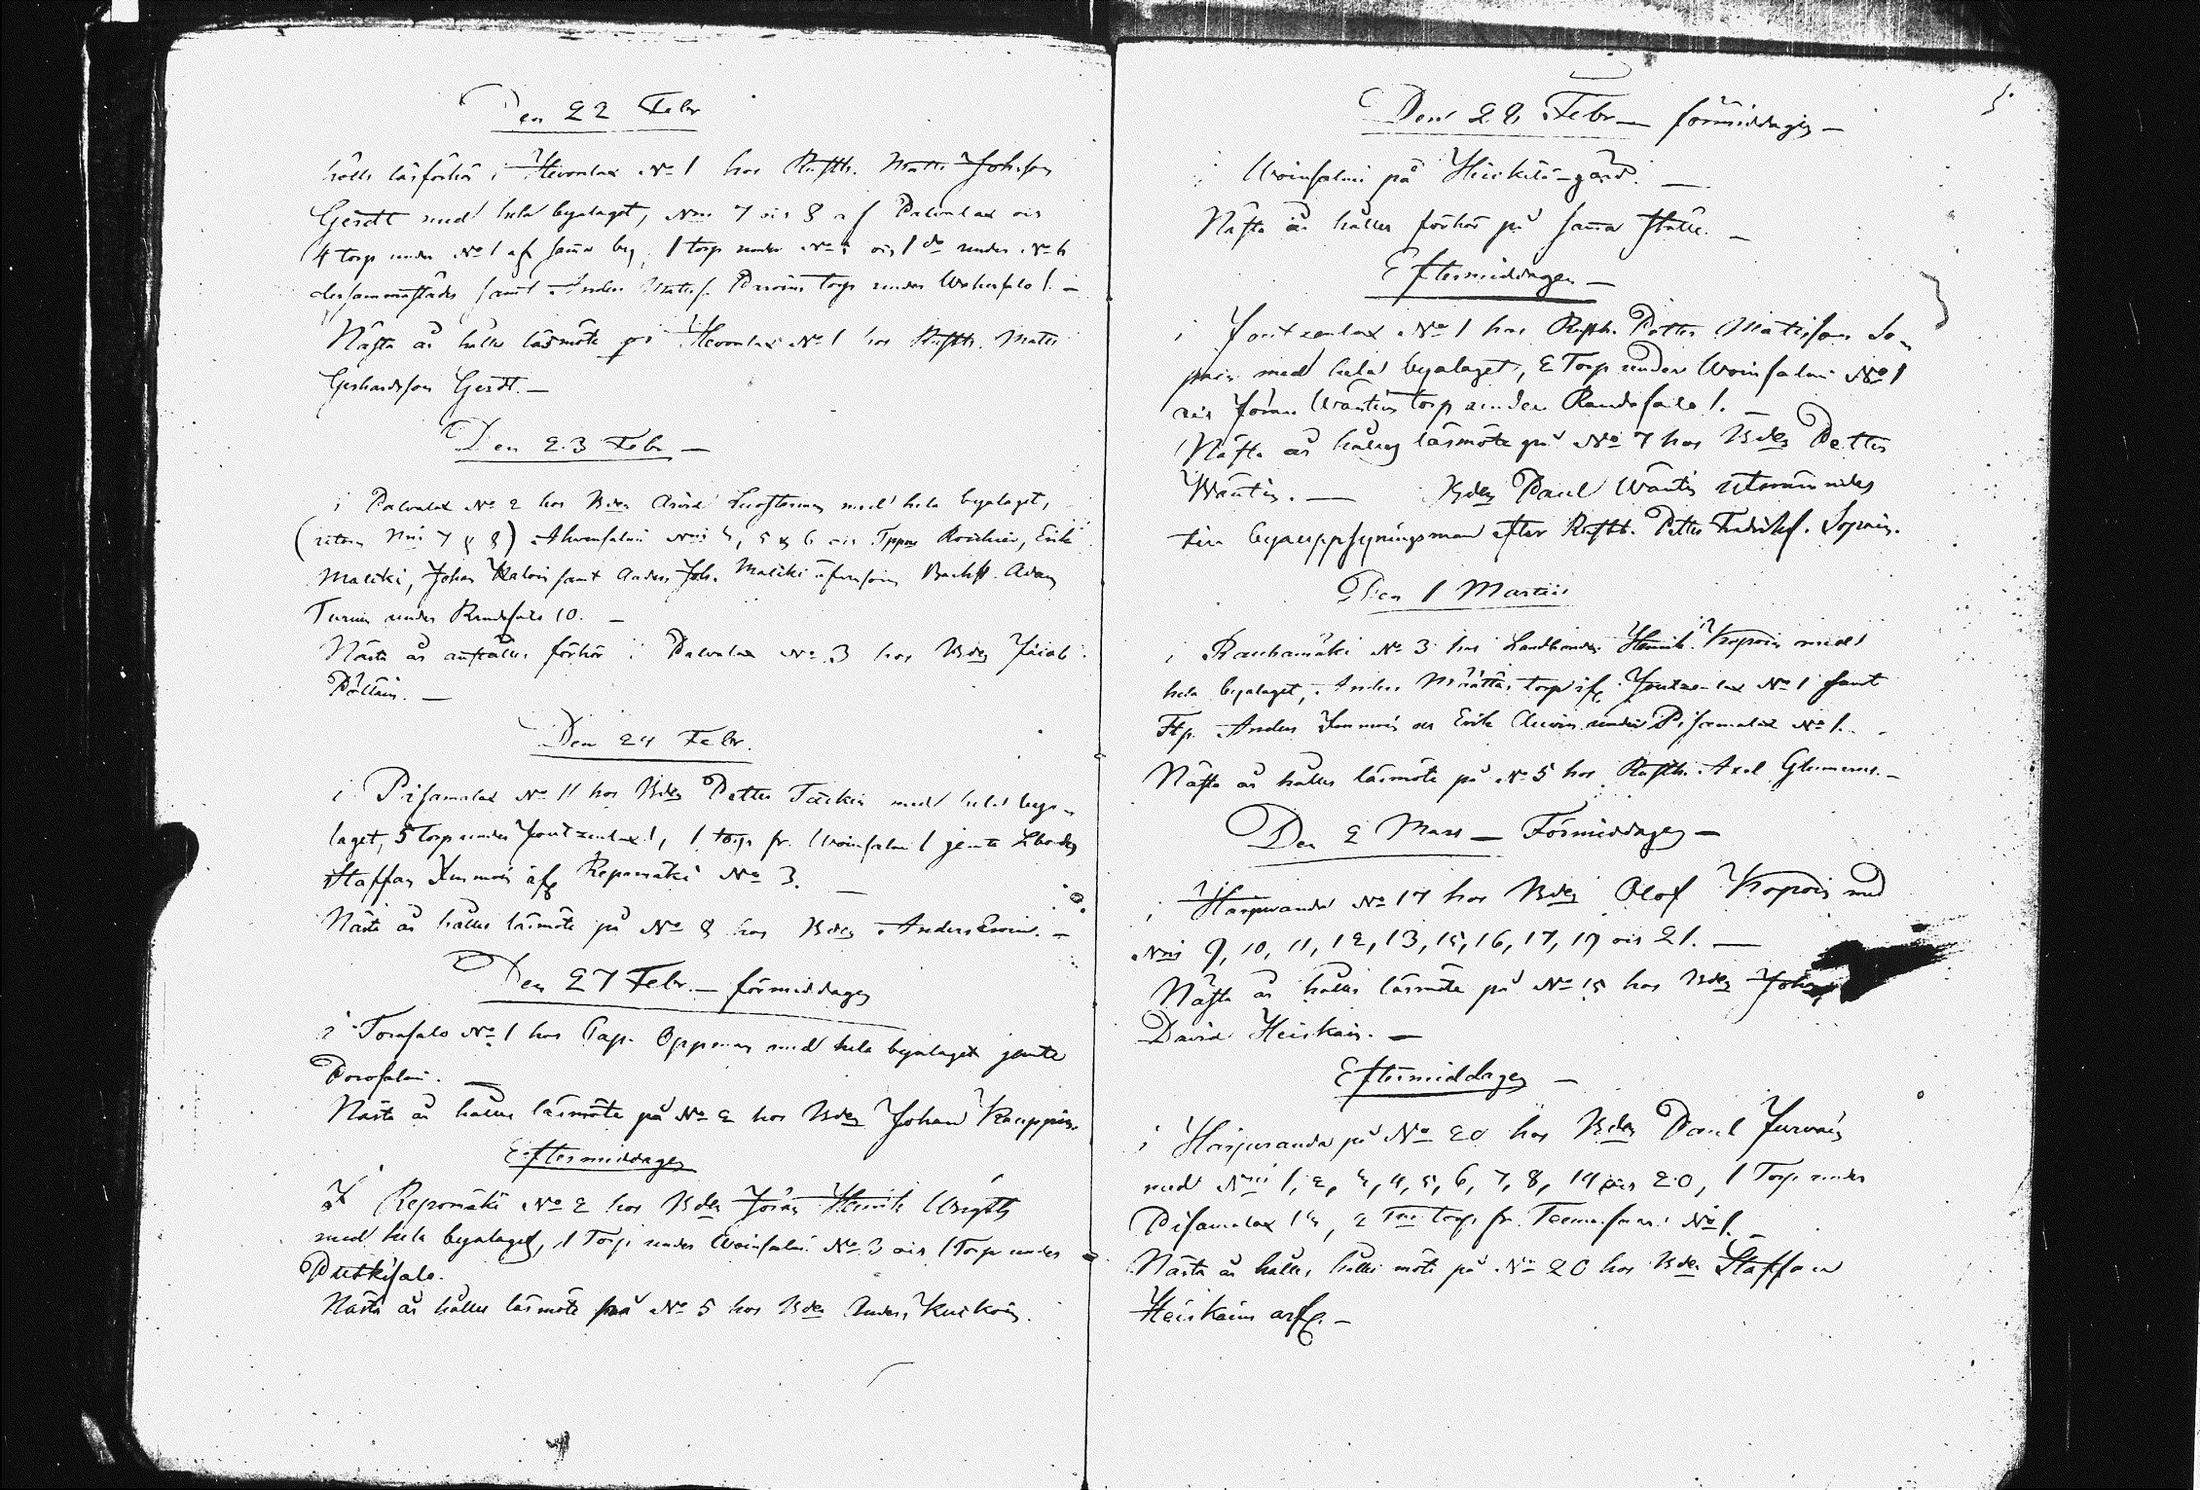 Den 22 Febr
hölls läsförhör i Hevonlax No 1 hos Rusth. Matts Johnson
Gerdt med hela byalaget, Nris 7 och 8 af Palvalax och
4 torp under No 1 af sam̄a by, 1 torp under No och 1 do under No 6
dersammastädes samt Anders Matss. Parvins torp under 1. –
Nästa år hålles läsmöte på Hevonlax No 1 hos Rusth. Matts
Gerhardsson Gerdt. –
Den 23 Febr –
i Palvalax No 2 hos Bden Arvid med hela byalaget,
(utom Nris 7 & 8) Ahvensalmi Nris 5 & 6 och Erik
Malcki, Johan samt Anders Joh. Malcki äfvensom Adam
Turun under Randasalo 10. –
Nästa år anställes förhör i Palvalax No 3 hos Bden Jacob
Pöllän. –
Den 24 Febr.
i Pisamalax No 11 hos Bden Petter Tackin med hela bya-
laget, 5 torp under Joutzenlax 1, 1 torp fr. Woinsalmi 1 jemte Lbonden
Staffan Immoin af Reponäki No 3. –
Nästa år hålles läsmöte på No 8 hos Bden Anders –
Den 27 Febr. – förmiddagen
i Torasalo No 1 hos Cap. Oppman med hela byalaget jemte
Porosalmi. –
Nästa år hålles läsmöte på No 2 hos Bden Johan Kauppin.
Eftermiddagen
I Reponäki No 2 hos Bden Jöran Henrik
med hela byalaget, 1 Torp under Woinsalmi No 3 och 1 Torp under
Putkisalo.
Nästa år hålles läsmöte på No 5 hos Bden Anders Kuikoin.
5.
Den 28 Febr – förmiddagen –
i Woinsalmi på Heiskilä-gård. –
Nästa år hålles förhör på sam̄a ställe. –
Eftermiddagen –
i Joutzenlax No 1 hos Rusth. Petter Matsson So-
pain med hela byalaget, 2 Torp under Woinsalmi No 1
och Jöran Wäntins torp under Randasalo 1. –
Nästa år hålles läsmöte på No 7 hos Bden Petter
Wäntin. – Bden Paul Wäntin utnämndes
till byauppsyningsman efter Rusth. Petter Fredriks. Sopain.
Den 1 Martii
i Rauhamäki No 3 hos Landbonden Henrik Kopoin med
hela byalaget, Anders Määttäs torp af Joutzenlax No 1 samt
Ftp. Anders Immoin och Erik Auvin under Pisamalax No 1. –
Nästa år hålles läsmöte på No 5 hos Rusth. Axel Glumerus. –
Den 2 Mars – Förmiddagen –
i Härjuranda No 17 hos Bden Olof Kopoin med
Nris 9, 10, 11, 12, 13, 15, 16, 17, 19 och 21. –
Nästa år hålles läsmöte på No 15 hos Bden Johan
David Heiskain. –
Eftermiddagen –
i Härjuranda på No 20 hos Bden Paul Jurvain
med Nris 1, 2, 3, 4, 5, 6, 7, 8, 14 och 20, 1 Torp under
Pisamalax 2 torp fr. No 1. –
Nästa år hålles hålles möte på No 20 hos Bden Staffan
Heiskains arfv. –